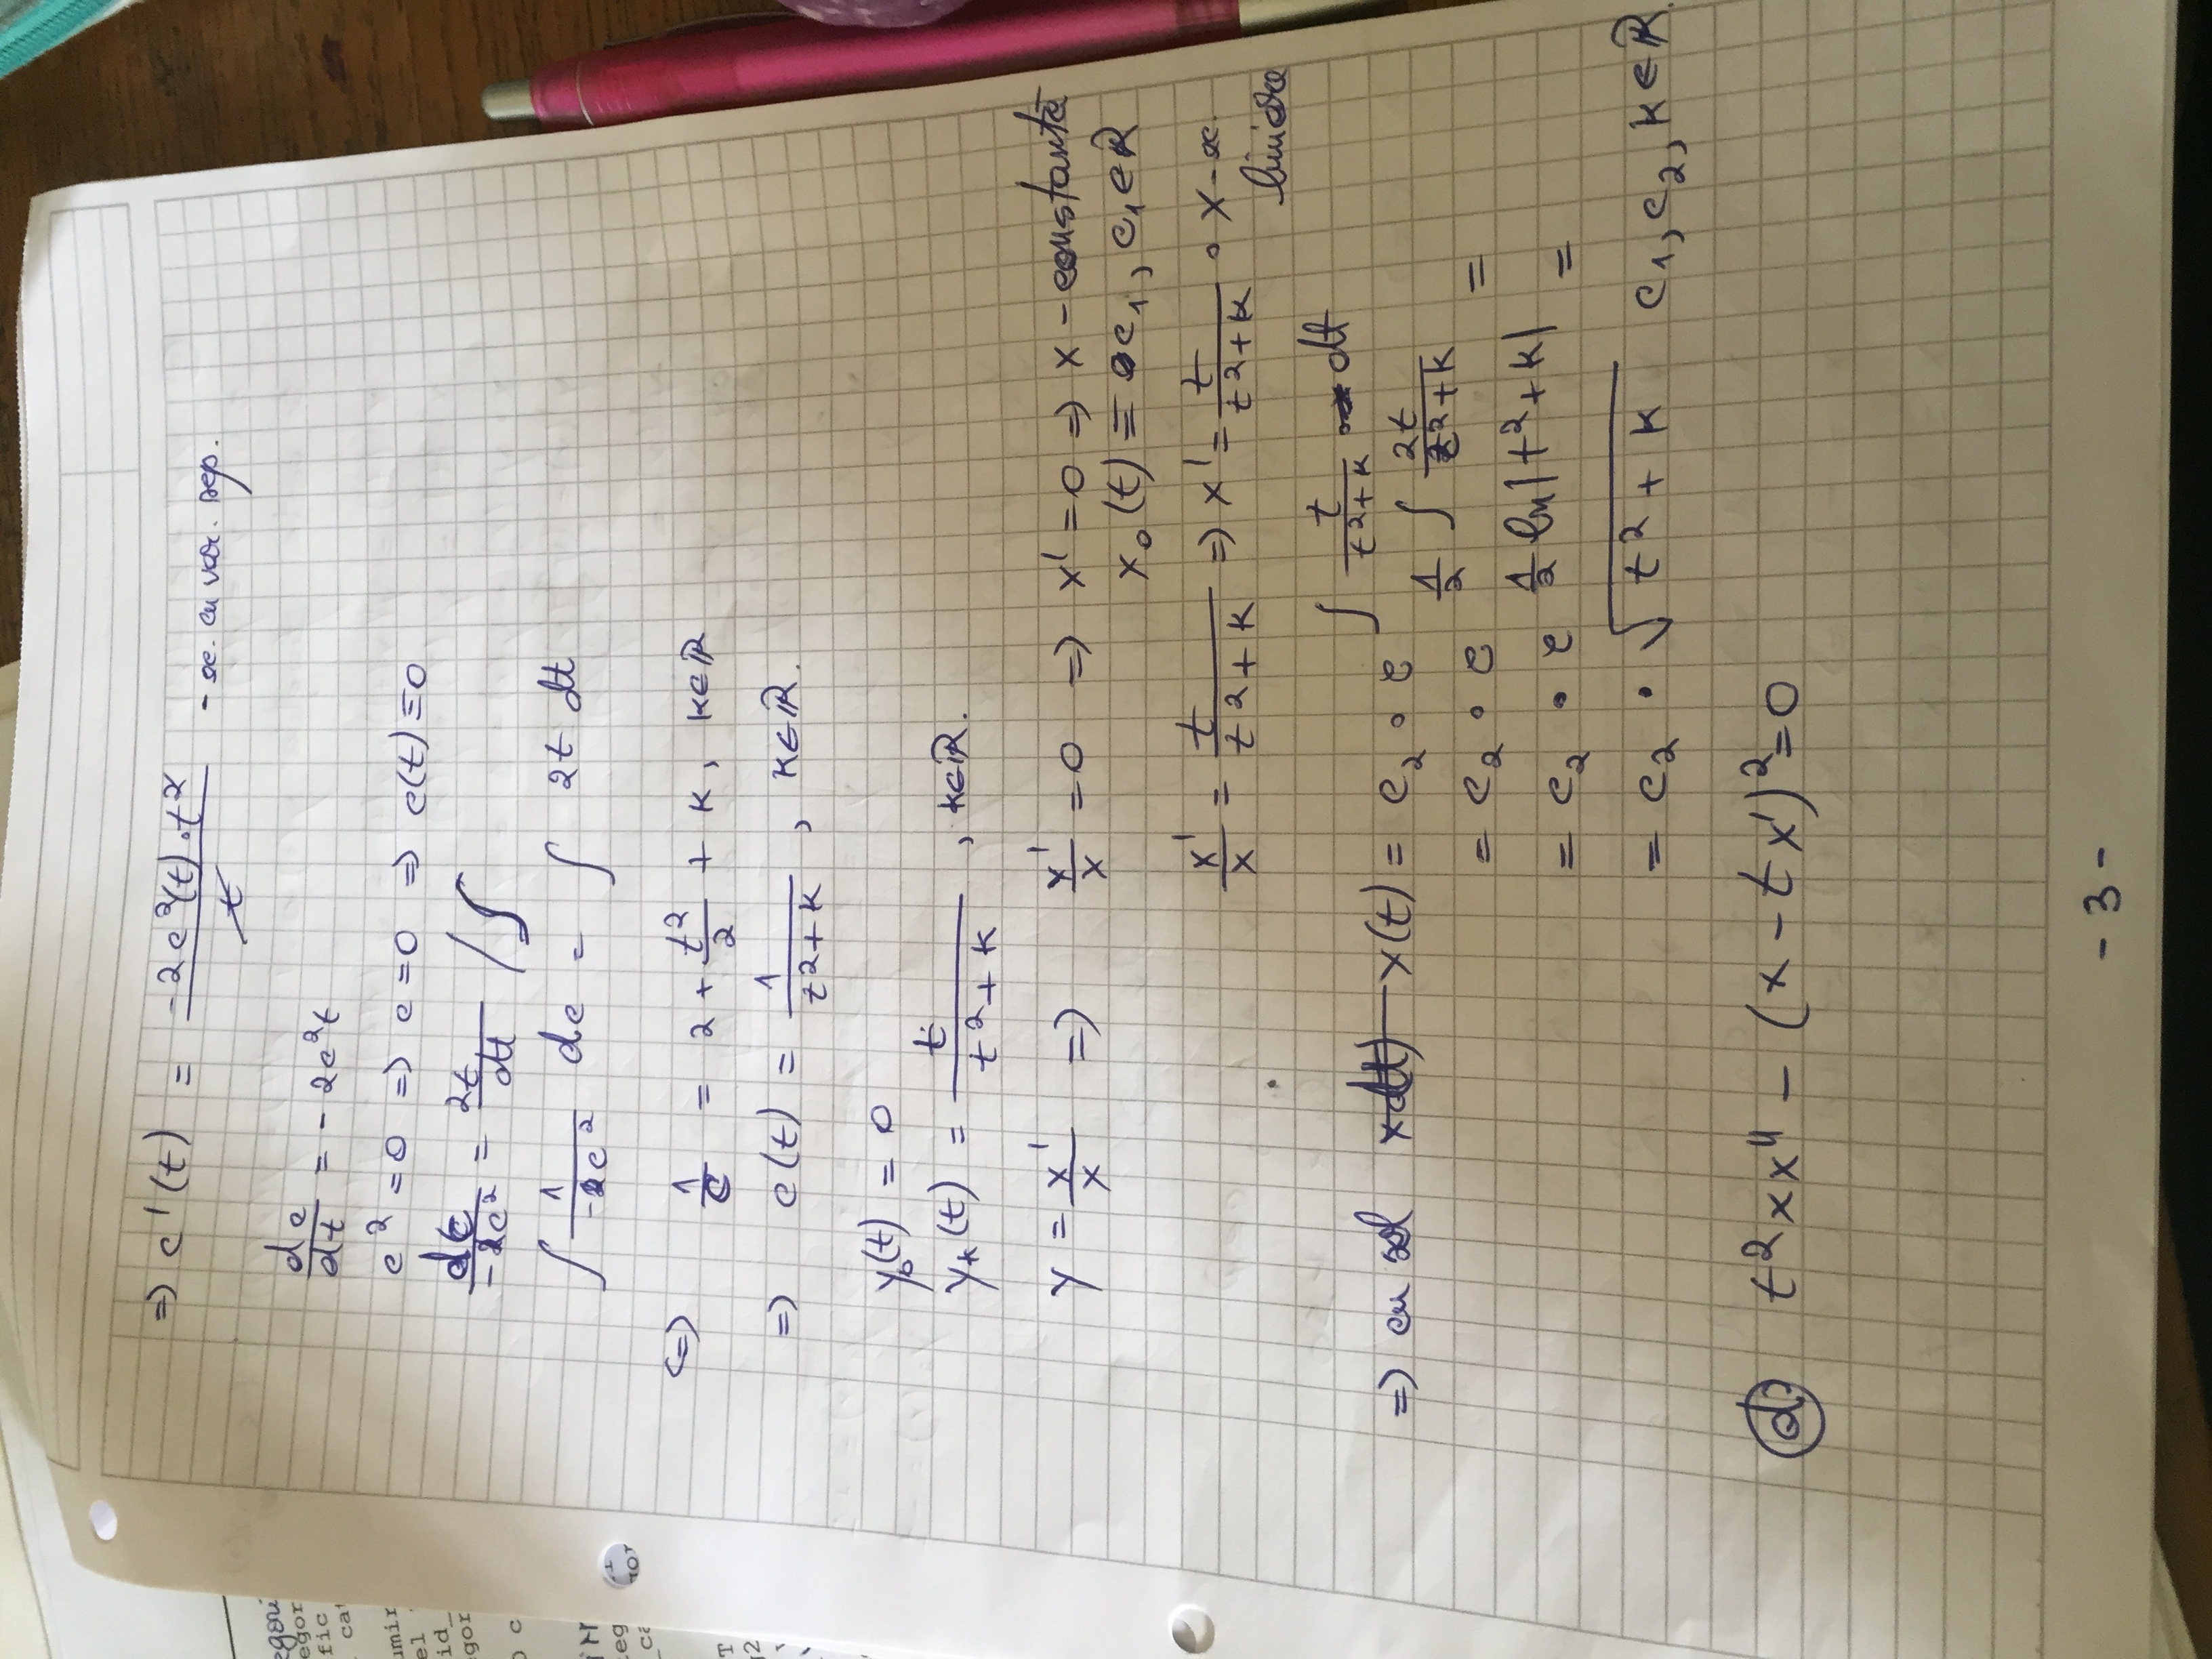 => c'(t) = -2c²(t)·t² / t - ec. cu var. sep.
dc/dt = -2c²t
c² = 0 => c = 0 => c(t) ≡ 0
dc/-c² = 2t/dt /∫
∫ 1/-c² dc = ∫ 2t dt
<=> 1/c = 2 + t²/2 + k, k∈ℝ
=> c(t) = 1/(t²+k), k∈ℝ.
y₀(t) = 0
y*(t) = t/(t²+k), k∈ℝ.
y = x'/x => x'/x = 0 => x' = 0 => x - constantă
x₀(t) ≡ c₁, c₁∈ℝ
x'/x = t/(t²+k) => x' = t/(t²+k) · x - ec.
liniara
=> cu sol x(t) = c₂ · e^(∫ t/(t²+k) dt)
= c₂ · e^(1/2 ∫ 2t/(t²+k)) =
= c₂ · e^(1/2 ln|t²+k|) =
= c₂ · √(t²+k) c₁, c₂, k∈ℝ.
d) t²xx'' - (x - tx')² = 0
- 3 -
egori
egor
fic
cat
umir
el
id_
egor
O c
teg
_ca
T